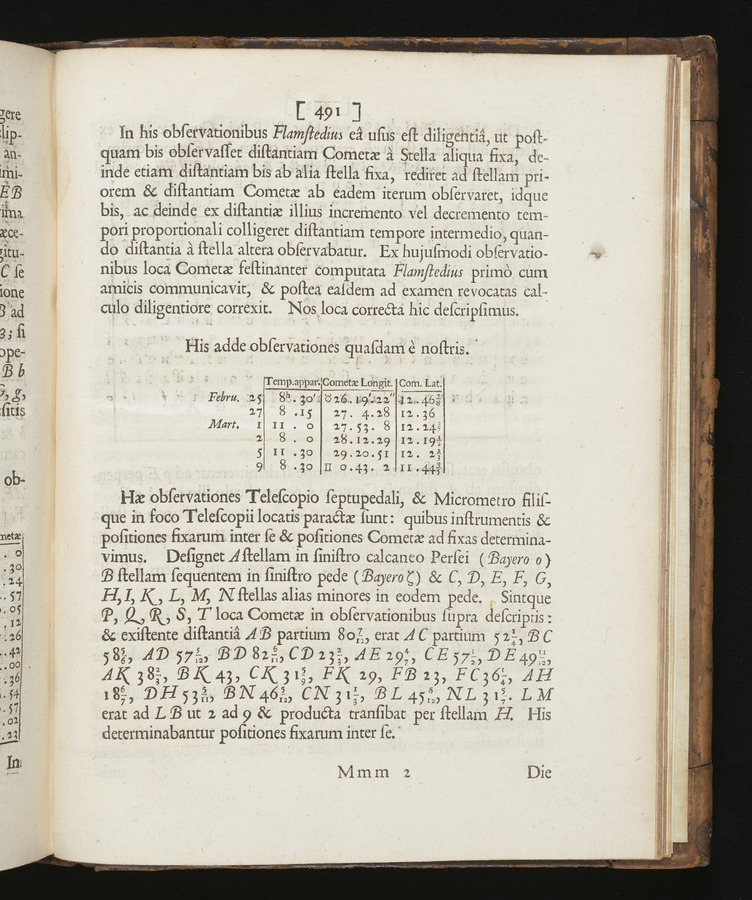 [ 491 ]
In his obſervationibus Flamſtedius eâ uſus eſt diligentiâ, ut poſt-
quam bis obſervaſſet diſtantiam Cometæ à Stella aliqua fixa, de-
inde etiam diſtantiam bis ab alia ſtella fixa, rediret ad ſtellam pri-
orem & diſtantiam Cometæ ab eadem iterum obſervaret, idque
bis, ac deinde ex diſtantiæ illius incremento vel decremento tem-
pori proportionali colligeret diſtantiam tempore intermedio, quan-
do diſtantia à ſtella altera obſervabatur. Ex hujuſmodi obſervatio-
nibus loca Cometæ feſtinanter computata Flamſtedius primò cum
amicis communicavit, & poſtea eaſdem ad examen revocatas cal-
culo diligentiore correxit. Nos loca correcta hic deſcripſimus.
His adde obſervationes quaſdam è noſtris.
Temp.appar. Cometæ Longit. Com. Lat.
Febru. 25 8h. 30' ♉ 26. 19'. 22" 12. 46⅞
27 8 . 15 27. 4. 28 12. 36
Mart. 1 11 . 0 27. 53. 8 12. 24
2 8 . 0 28. 12. 29 12. 19½
5 11 . 30 29. 20. 51 12. 2⅔
9 8 . 30 ♊ 0. 43. 2 11. 44
Hæ obſervationes Teleſcopio ſeptupedali, & Micrometro filiſ-
que in foco Teleſcopii locatis paractæ ſunt: quibus inſtrumentis &
poſitiones fixarum inter ſe & poſitiones Cometæ ad fixas determina-
vimus. Deſignet A ſtellam in ſiniſtro calcaneo Perſei (Bayero o)
B ſtellam ſequentem in ſiniſtro pede (Bayero ζ) & C, D, E, F, G,
H, I, K, L, M, N ſtellas alias minores in eodem pede. Sintque
P, Q, R, S, T loca Cometæ in obſervationibus ſupra deſcriptis:
& exiſtente diſtantiâ AB partium 80 7/12, erat AC partium 52¼, BC
58⅚, AD 57 5/12, BD 82 6/11, CD 23⅔, AE 29 4/7, CE 57½, DE 49 11/12,
AK 38⅔, BK 43, CK 31 5/9, FK 29, FB 23, FC 36¼, AH
18 6/7, DH 53 5/11, BN 46 5/12, CN 31⅓, BL 45 5/12, NL 31 5/7. LM
erat ad LB ut 2 ad 9 & producta tranſibat per ſtellam H. His
determinabantur poſitiones fixarum inter ſe.
Mmm 2 Die